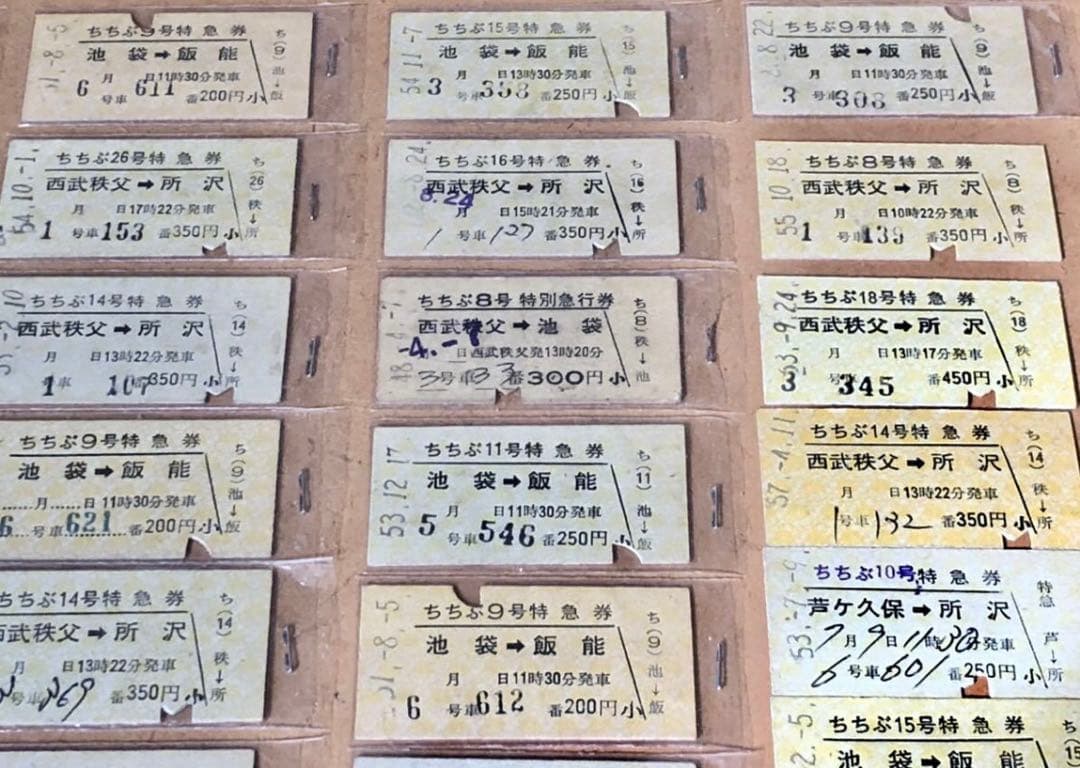 ちちぶ9号特急券
池袋➡飯能
月 日11時30分発車
6号車611番200円小
ち(9)池→飯
ちちぶ15号特急券
54.11.-7
池袋➡飯能
月 日13時30分発車
3号車308番250円小
ち(15)池→飯
ちちぶ9号特急券
池袋➡飯能
月 日11時30分発車
3号車308番250円小
ち(9)池→飯
ちちぶ26号特急券
54.10.-1.
西武秩父➡所沢
月 日17時22分発車
1号車153番350円小
ち(26)秩→所
ちちぶ16号特急券
西武秩父➡所沢
8.24
月 日15時21分発車
1号車127番350円小
ち(16)秩→所
ちちぶ8号特急券
55.10.18.
西武秩父➡所沢
月 日10時22分発車
1号車139番350円小
ち(8)秩→所
ちちぶ14号特急券
西武秩父➡所沢
月 日13時22分発車
1車107番350円小
ち(14)秩→所
ちちぶ8号特別急行券
西武秩父➡池袋
-4.-7
日西武秩父発13時20分
3号車33番300円小
ち(8)秩→池
ちちぶ18号特急券
63.-9.24
西武秩父➡所沢
月 日13時17分発車
3号車345番450円小
ち(18)秩→所
ちちぶ9号特急券
池袋➡飯能
月 日11時30分発車
6号車621番200円小
ち(9)池→飯
ちちぶ11号特急券
53.12.17
池袋➡飯能
月 日11時30分発車
5号車546番250円小
ち(11)池→飯
ちちぶ14号特急券
57.-4.11
西武秩父➡所沢
月 日13時22分発車
1号車132番350円小
ち(14)秩→所
ちちぶ14号特急券
西武秩父➡所沢
月 日13時22分発車
号車269番350円小
ち(14)秩→所
ちちぶ9号特急券
51.-8.-5
池袋➡飯能
月 日11時30分発車
6号車612番200円小
ち(9)池→飯
ちちぶ10号特急券
53.-7.-9
芦ケ久保➡所沢
7月9日11時30分発車
6号車601番250円小
特急 芦→所
ちちぶ15号特急券
池袋➡飯能